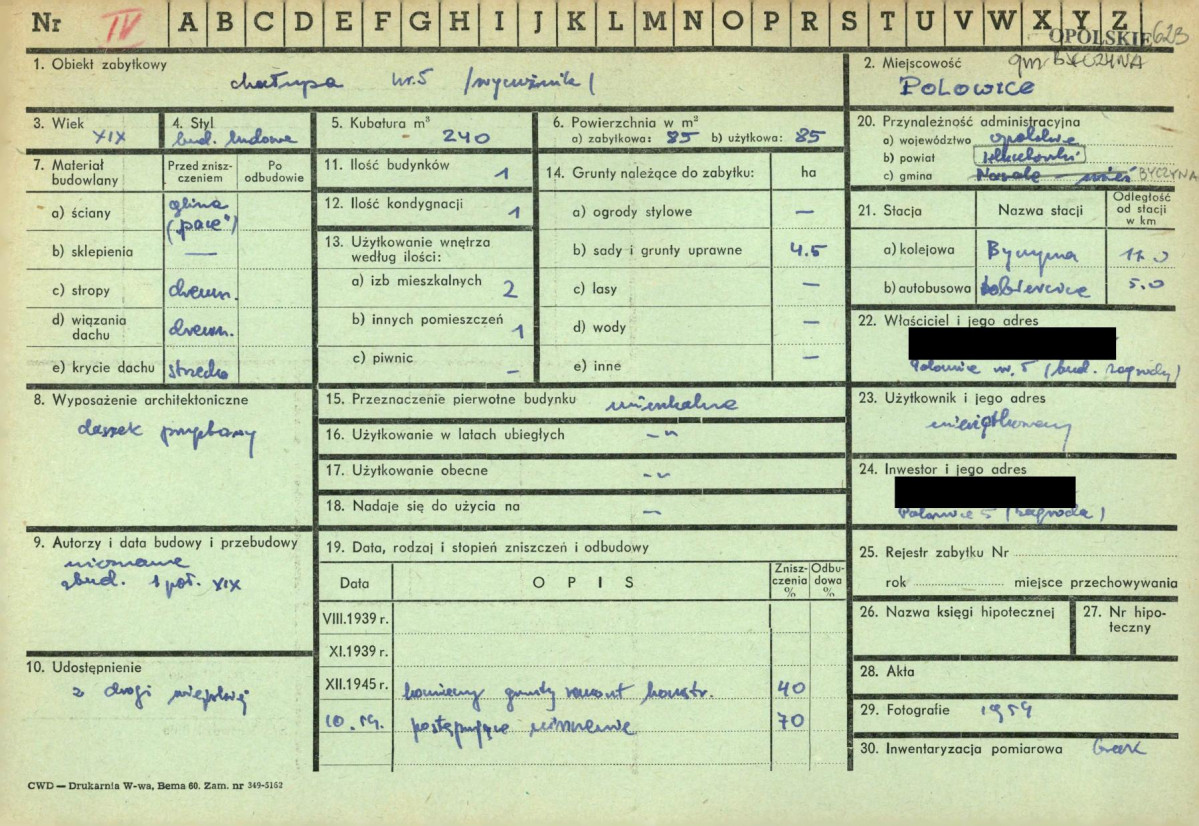 Nr IV A B C D E F G H I J K L M N O P R S T U V W X Y Z
OPOLSKIE 623
gm BYCZYNA
1. Obiekt zabytkowy
chałupa nr. 5 /wycużnik/
2. Miejscowość
POLOWICE
3. Wiek
XIX
4. Styl
bud. ludowe
5. Kubatura m³
240
6. Powierzchnia w m²
a) zabytkowa: 85 b) użytkowa: 85
20. Przynależność administracyjna
a) województwo opolskie
b) powiat kluczborski
c) gmina Nasale - wieś BYCZYNA
7. Materiał budowlany
Przed zniszczeniem
Po odbudowie
a) ściany glina ("pace")
b) sklepienia —
c) stropy drewn.
d) wiązania dachu drewn.
e) krycie dachu strzecha
11. Ilość budynków 1
12. Ilość kondygnacji 1
13. Użytkowanie wnętrza według ilości:
a) izb mieszkalnych 2
b) innych pomieszczeń 1
c) piwnic –
14. Grunty należące do zabytku: ha
a) ogrody stylowe —
b) sady i grunty uprawne 4.5
c) lasy —
d) wody —
e) inne —
21. Stacja
Nazwa stacji
Odległość od stacji w km
a) kolejowa Byczyna 11.0
b) autobusowa 5.0
22. Właściciel i jego adres
Polowice nr. 5 (bud. zagrody)
8. Wyposażenie architektoniczne
daszek przyzbowy
15. Przeznaczenie pierwotne budynku mieszkalne
16. Użytkowanie w latach ubiegłych -"-
17. Użytkowanie obecne -"-
18. Nadaje się do użycia na —
23. Użytkownik i jego adres
nieużytkowany
24. Inwestor i jego adres
Polowice 5 (zagroda)
9. Autorzy i data budowy i przebudowy
nieznane
zbud. 1 poł. XIX
19. Data, rodzaj i stopień zniszczeń i odbudowy
Data
OPIS
Zniszczenia %
Odbudowa %
VIII.1939 r.
XI.1939 r.
XII.1945 r. konieczny gruntu remont konstr. 40
10.59. postępujące niszczenie 70
25. Rejestr zabytku Nr
rok miejsce przechowywania
26. Nazwa księgi hipotecznej
27. Nr hipoteczny
10. Udostępnienie
z drogi wiejskiej
28. Akta
29. Fotografie 1959
30. Inwentaryzacja pomiarowa brak
CWD — Drukarnia W-wa, Bema 60. Zam. nr 349-5162